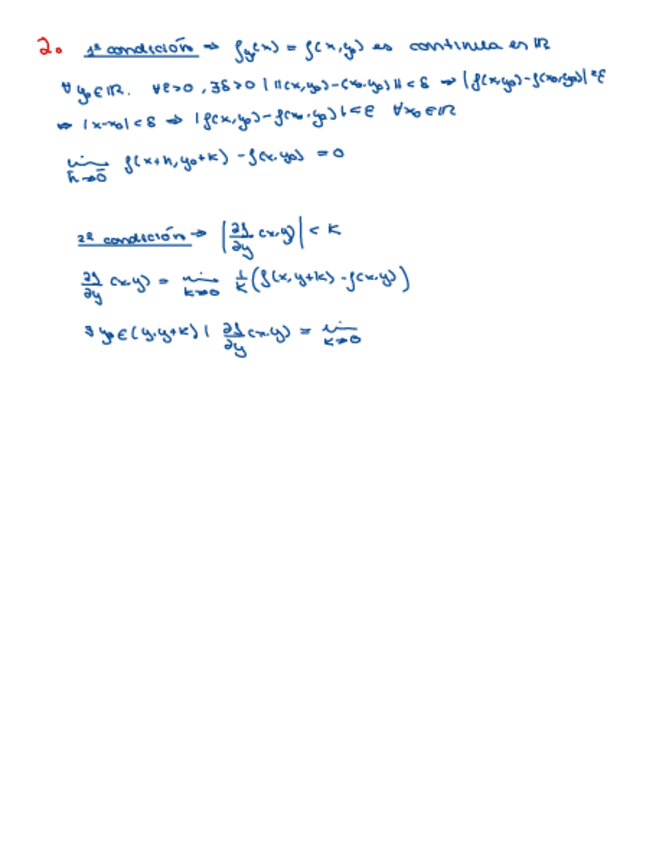 2. 1ª condición → f_y(x) = f(x, y₀) es continua en ℝ
∀ y₀ ∈ ℝ. ∀ε>0, ∃δ>0 | ||(x,y₀)-(x₀,y₀)|| < δ → |f(x,y₀)-f(x₀,y₀)| < ε
↔ |x-x₀| < δ → |f(x,y₀)-f(x₀,y₀)| < ε ∀x₀ ∈ ℝ
lim h̄→0̄ f(x+h, y₀+k) - f(x,y₀) = 0
2ª condición → |∂f/∂y (x,y)| < K
∂f/∂y (x,y) = lim k→0 1/k (f(x,y+k) - f(x,y))
∃ y₀ ∈ (y,y+k) | ∂f/∂y (x,y) = lim k→0